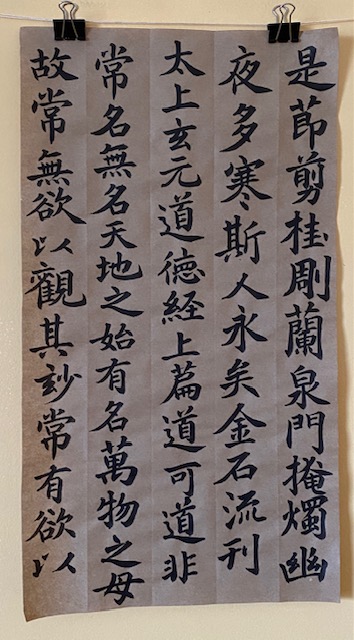 是莭剪桂㓮蘭泉門掩燭幽
夜多寒斯人永矣金石流刊
太上玄元道德経上篇道可道非
常名無名天地之始有名萬物之母
故常無欲以觀其玅常有欲以